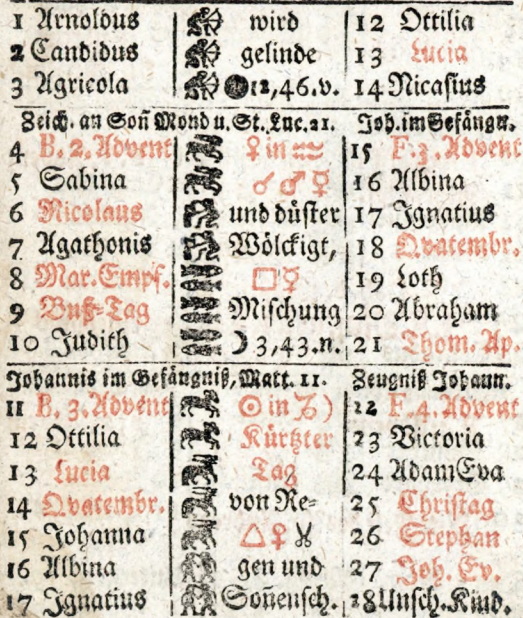 1 Arnoldus wird 12 Ottilia
2 Candidus gelinde 13 Lucia
3 Agricola ●12,46.v. 14 Nicasius
Zeich. an Soñ Mond u. St. Luc. 21. Joh. im Gefängn.
4 B. 2. Advent ♀ in ♒ 15 F. 3. Advent
5 Sabina ☌ ♂ ☿ 16 Albina
6 Nicolaus und düster 17 Ignatius
7 Agathonis Wölckigt, 18 Qvatembr.
8 Mar. Empf. □ ☿ 19 Loth
9 Buß-Tag Mischung 20 Abraham
10 Judith ☽ 3,43.n. 21 Thom. Ap.
Johannis im Gefängniß, Matt. 11. Zeugniß Johann.
11 B. 3. Advent ☉ in ♑) 22 F. 4. Advent
12 Ottilia Kürtzter 23 Victoria
13 Lucia Tag 24 Adam Eva
14 Qvatembr. von Re- 25 Christag
15 Johanna △ ♀ 26 Stephan
16 Albina gen und 27 Joh. Ev.
17 Ignatius Soñensch. 28 Unsch. Kind.